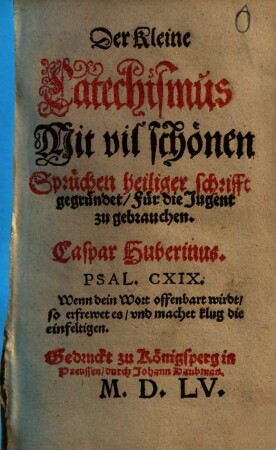 Der Kleine
Catechismus
Mit vil schönen
Sprüchen heiliger schrifft
gegründet / Für die Jugent
zu gebrauchen.
Caspar Huberinus.
PSAL. CXIX.
Wenn dein Wort offenbart wirdt /
so erfrewet es / vnd machet klug die
einfeltigen.
Gedruckt zu Königsperg in
Preussen / durch Johann Daubman.
M. D. LV.